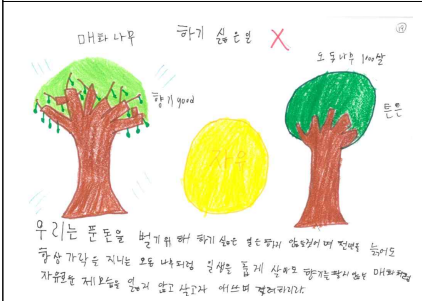 매화나무
하기 싫은 일 X
19
오동나무 100살
향기 good
튼튼
자유
우리는 푼돈을 벌기 위해 하기 싫은 일은 하지 않을것이며 늙어도
항상 가락을 지니는 오동나무처럼 일생을 춥게 살아도 향기를 팔지 않는 매화처럼
자유로운 제모습을 잃지 않고 살고자 애쓰며 격려하리라